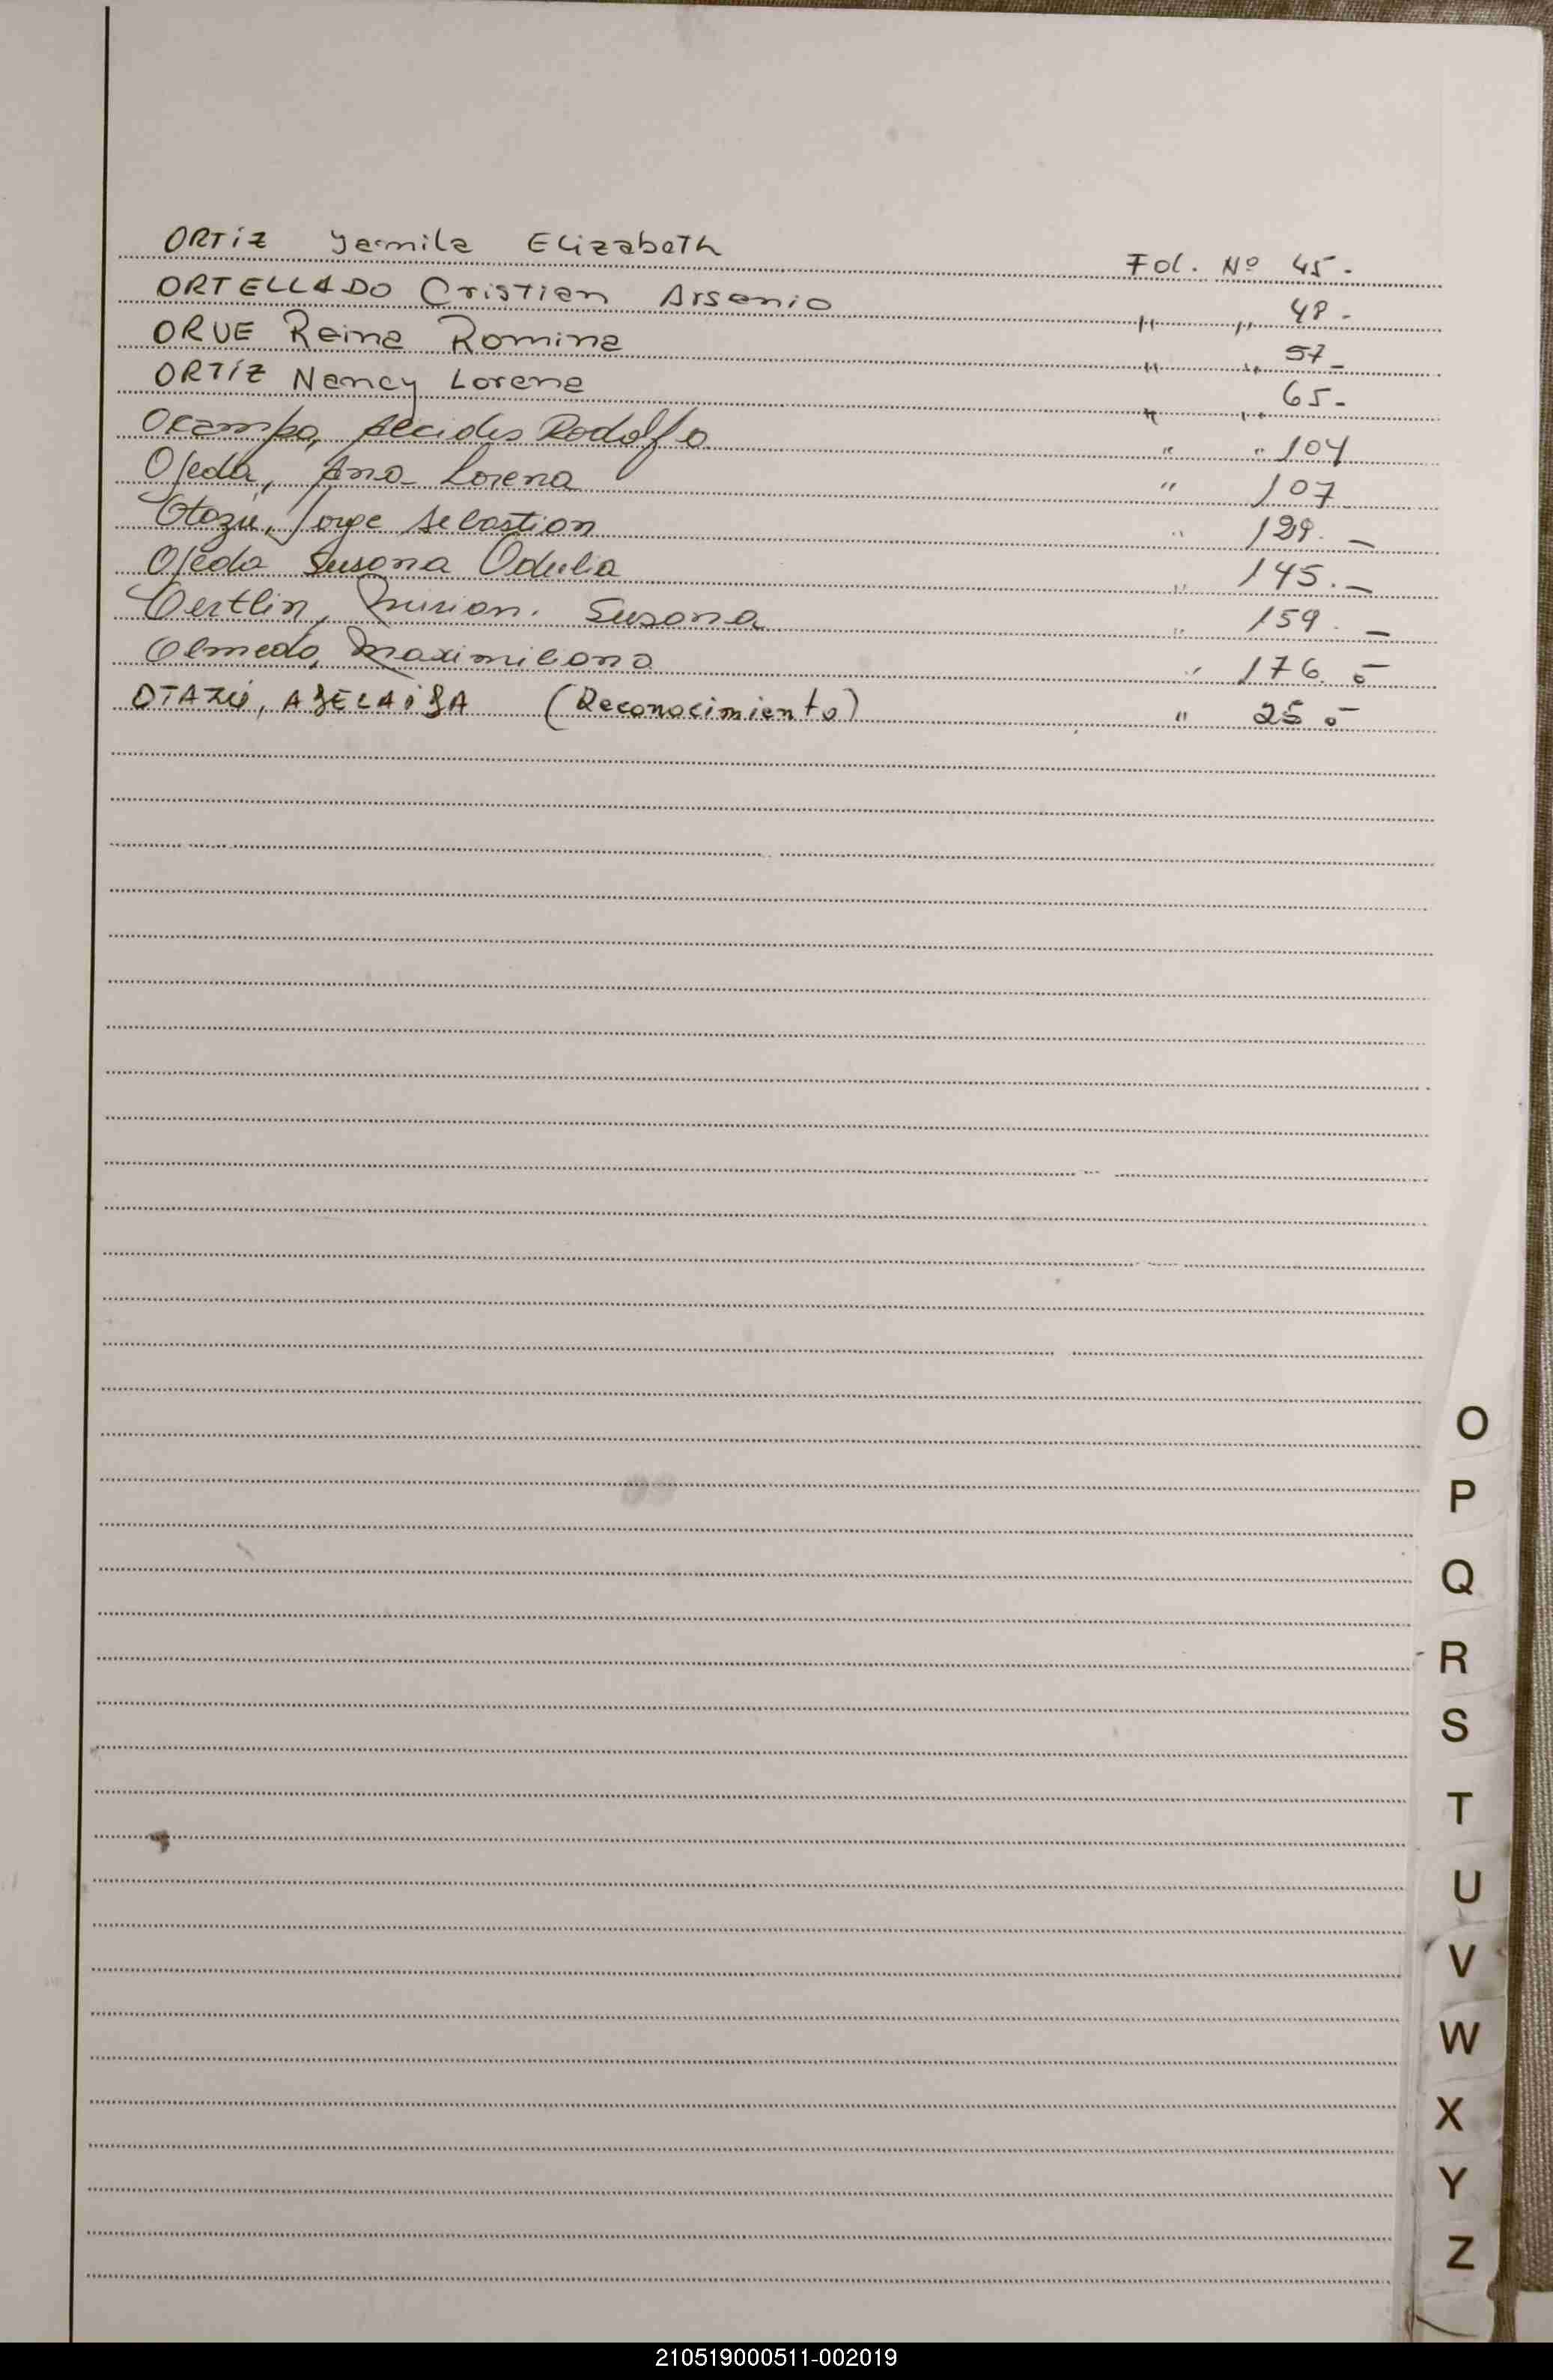 ORTIZ Yamila Elizabeth Fol. Nº 45-
ORTELLADO Cristian Arsenio " " 48-
ORUE Reina Romina " " 57-
ORTIZ Nancy Lorena " " 65-
Ocampo, Alcides Rodolfo " " 104
Ojeda, Ana Lorena " 107
Otazu, Jorge Sebastian " 129.-
Ojeda Susana Odulia " 145.-
Oertlin, Mirian. Susana " 159.-
Olmedo, Maximiliano " 176.-
OTAZÚ, ADELAIDA (Reconocimiento) " 25.-
O
P
Q
R
S
T
U
V
W
X
Y
Z
210519000511-002019